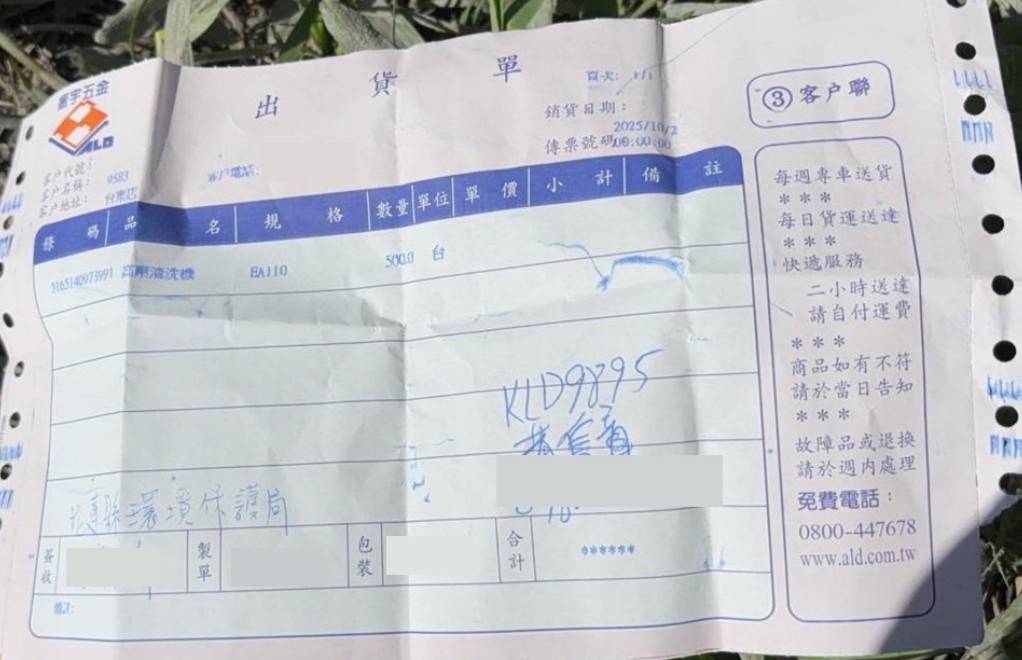 寰宇五金
ALD
出貨單
頁次: 1/1
銷貨日期:
2025/10/2
傳票號碼 00:00:00
③客戶聯
客戶代號: 9583
客戶名稱: 台東店
客戶地址:
客戶電話:
條碼 品名 規格 數量 單位 單價 小計 備註
3165140973991 高壓清洗機 EA110 500.0 台
KLD9895
花蓮縣環境保護局
簽收 製單 包裝 合計 ******
備註:
每週專車送貨
***
每日貨運送達
***
快遞服務
二小時送達
請自付運費
***
商品如有不符
請於當日告知
***
故障品或退換
請於週內處理
免費電話:
0800-447678
www.ald.com.tw